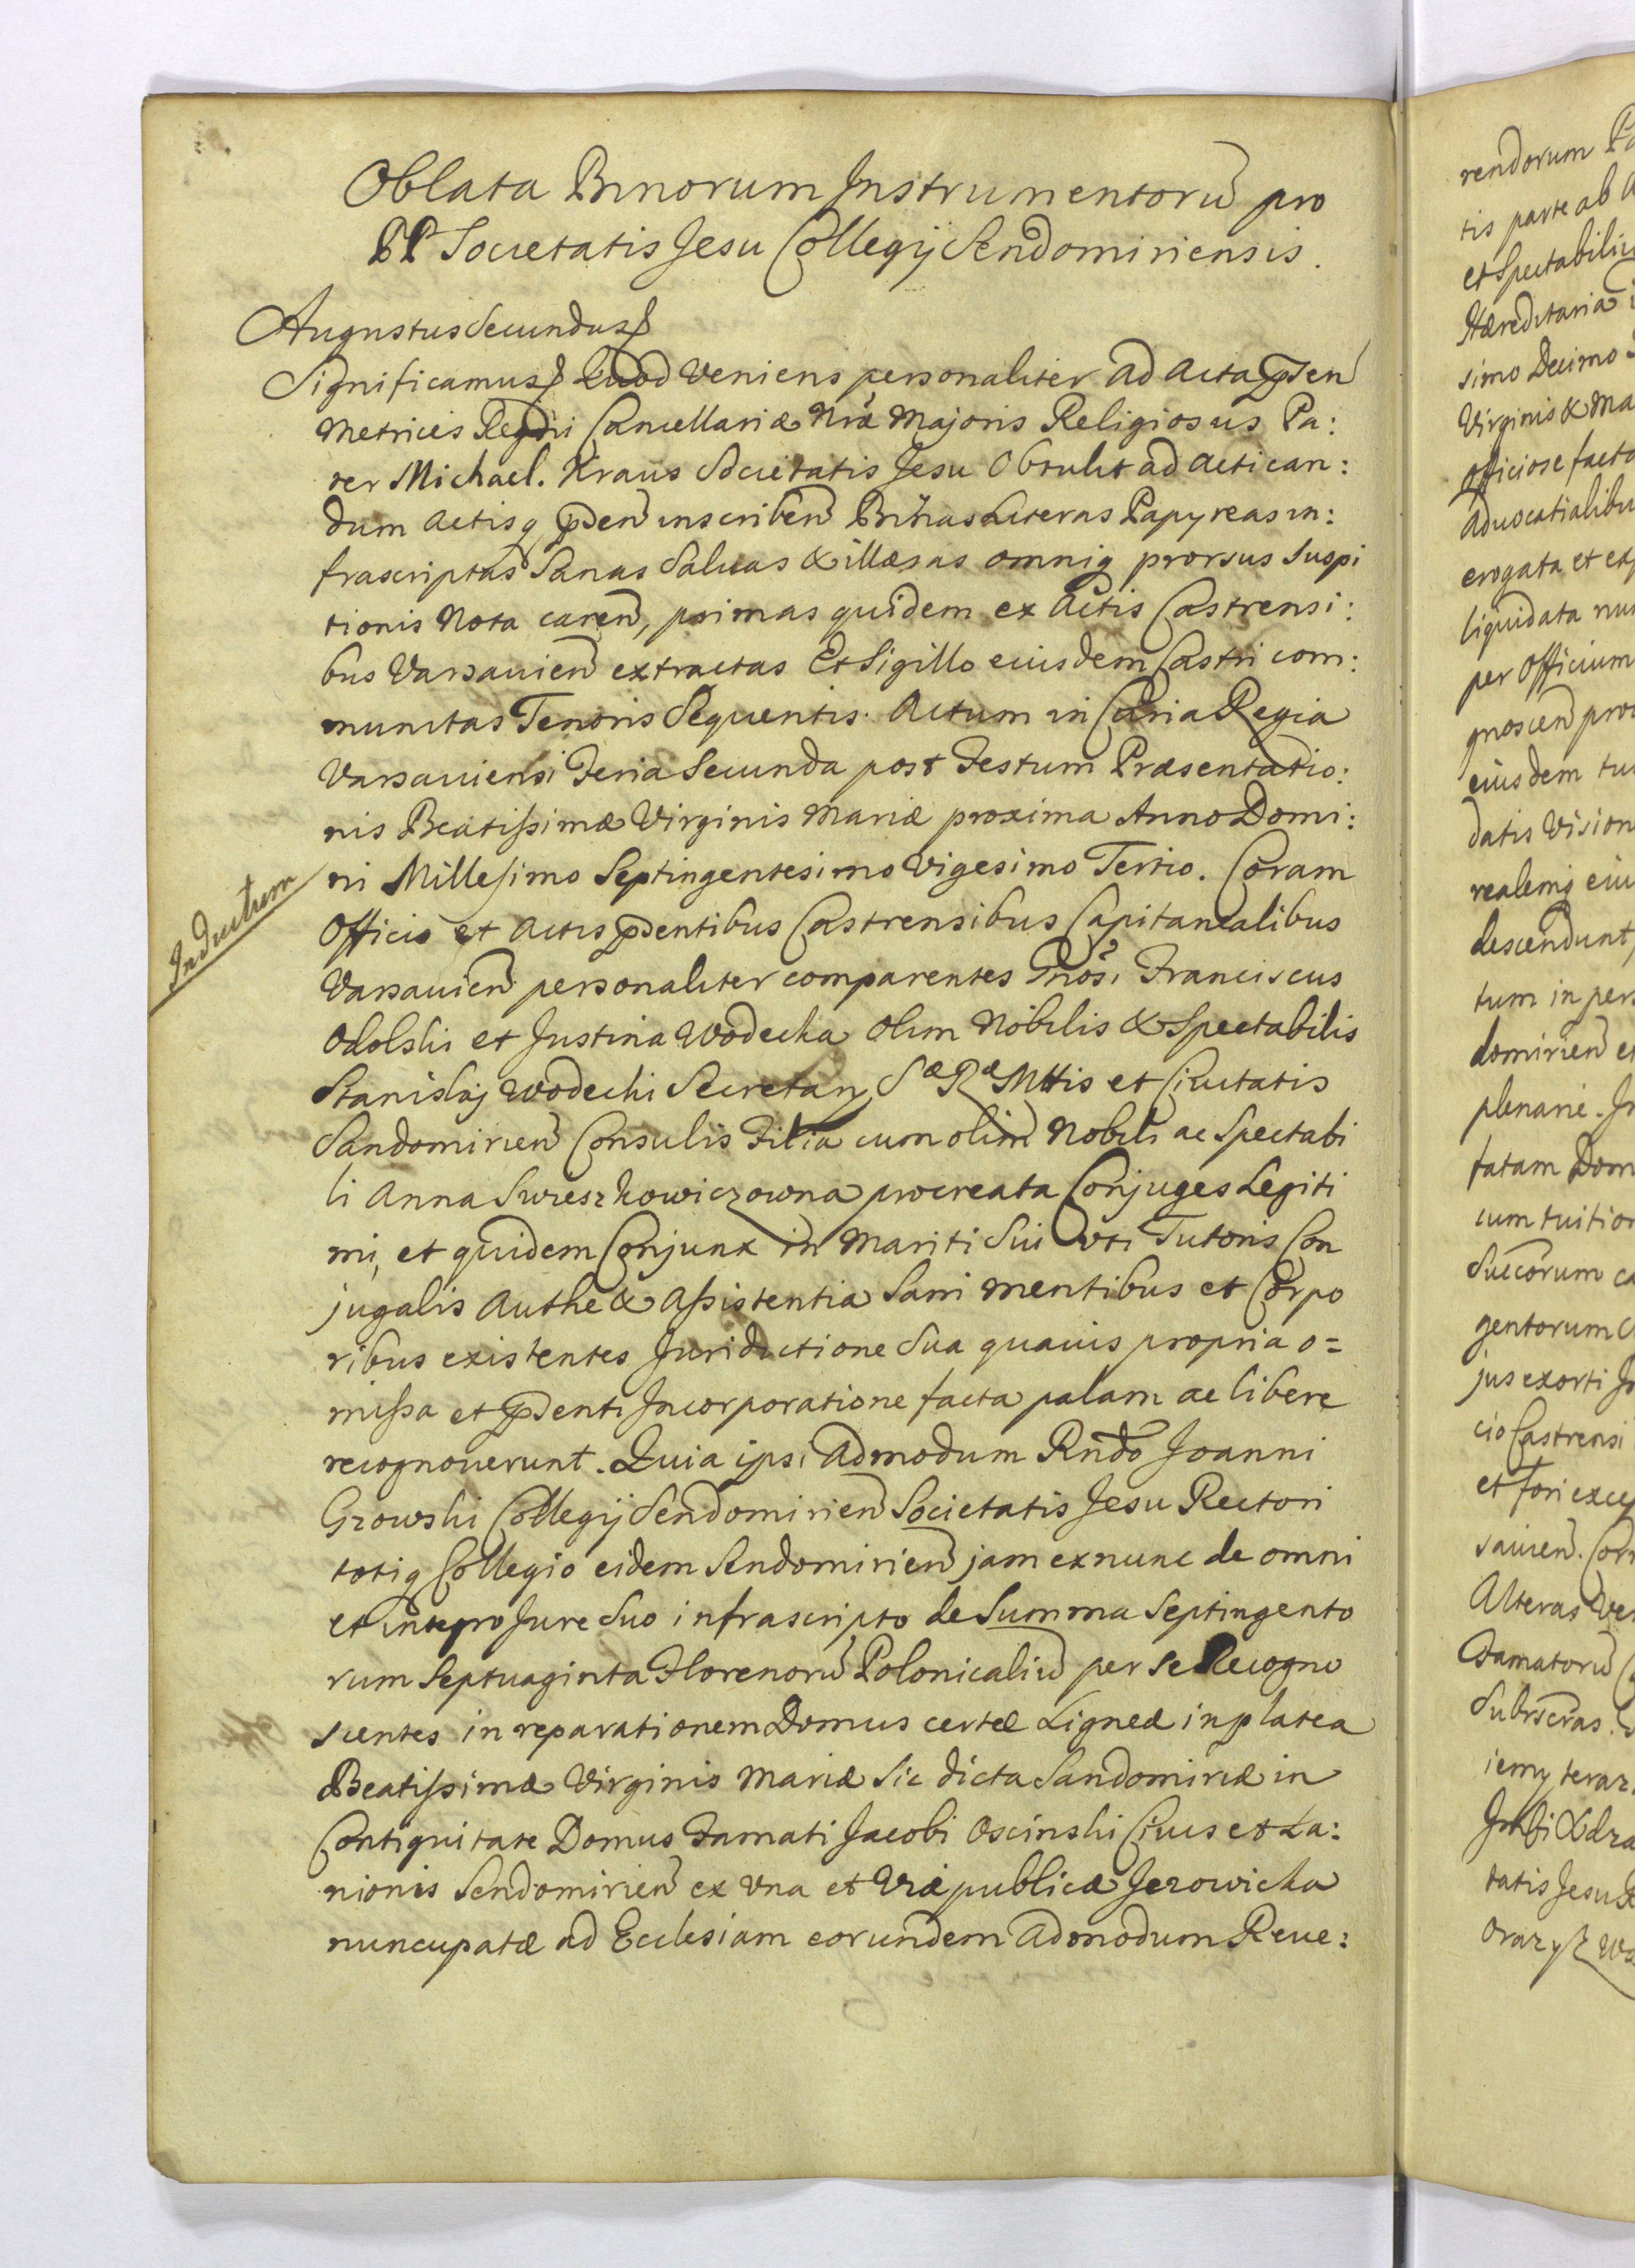 Oblata Binorum Instrumentorũ pro
PP Societatis Jesu Collegij Sendomiriensis.
Augustus Secundus
Significamus Quod Veniens personaliter ad Acta pñten
Metrices Regni Cancellariæ Nræ Majoris Religiosus Pa:
ter Michael. Kraus Societatis Jesu Obtulit ad Actican:
dum Actisq pñten inscriben Binas Literas Papyreas in:
frascriptas Sanas Salvas & illæsas omniq prorsus Suspi
tionis Nota caren, primas quidem ex Actis Castrensi:
bus Varsavien extractas Et Sigillo eiusdem Castri com:
munitas Tenoris Sequentis. Actum in Curia Regia
Varsaviensi Feria Secunda post Festum Præsentatio:
nis Beatissimæ Virginis Mariæ proxima Anno Domi:
ni Millesimo Septingentesimo Vigesimo Tertio. Coram
Inductum
Officio et Actis pñtentibus Castrensibus Capitanealibus
Varsavien personaliter comparentes Gnõsi Franciscus
Odolski et Justina Wodecka Olim Nobilis & Spectabilis
Stanislaj Wodecki Secretarij Sæ Ræ Mttis et Civitatis
Sandomirien Consulis Filia cum olim Nobili ac Spectabi
li Anna Swieszkowiczowna procreata Conjuges Legiti
mi, et quidem Conjunx in Mariti Sui uti Tutoris Con
jugalis Authe & Assistentia Sani mentibus et Corpo
ribus existentes Juridictione Sua quavis propria o=
missa et pñtenti Incorporatione facta palam ac libere
recognoverunt. Quia ipsi Admodum Rñdo Joanni
Growski Collegij Sendomirien Societatis Jesu Rectori
totiq Collegio eidem Sendomirien jam exnunc de omni
et integro Jure Suo infrascripto de Summa Septingento
rum Septuaginta Florenorũ Polonicaliũ per se Recogno
scentes in reparationem Domus certæ Ligneæ in platea
Beatissimæ Virginis Mariæ Sic dicta Sandomiriæ in
Contiguitate Domus Famati Jacobi Oscinski Civis et La:
nionis Sendomirien ex Una et Viæ publicæ Jezowicka
nuncupatæ ad Ecclesiam eorundem Admodum Reve:
rendorum
tis parte ab
et Spectabiliu
Hæreditaria
simo Decimo
Virginis & Ma
officiose facta
advocatialibu
erogata et
liquidata
per Officium
gnoscen
eiusdem
datis Vision
realemq
descendunt,
tum in pers
domirien et
plenarie.
fatam Dom
cum tuition
Succorum
gentorum
jus exorti
cio Castrensi
et fori
savien.
Alteras
Famatorũ
Subrscras.
iemy teraz.
tatis Jesu